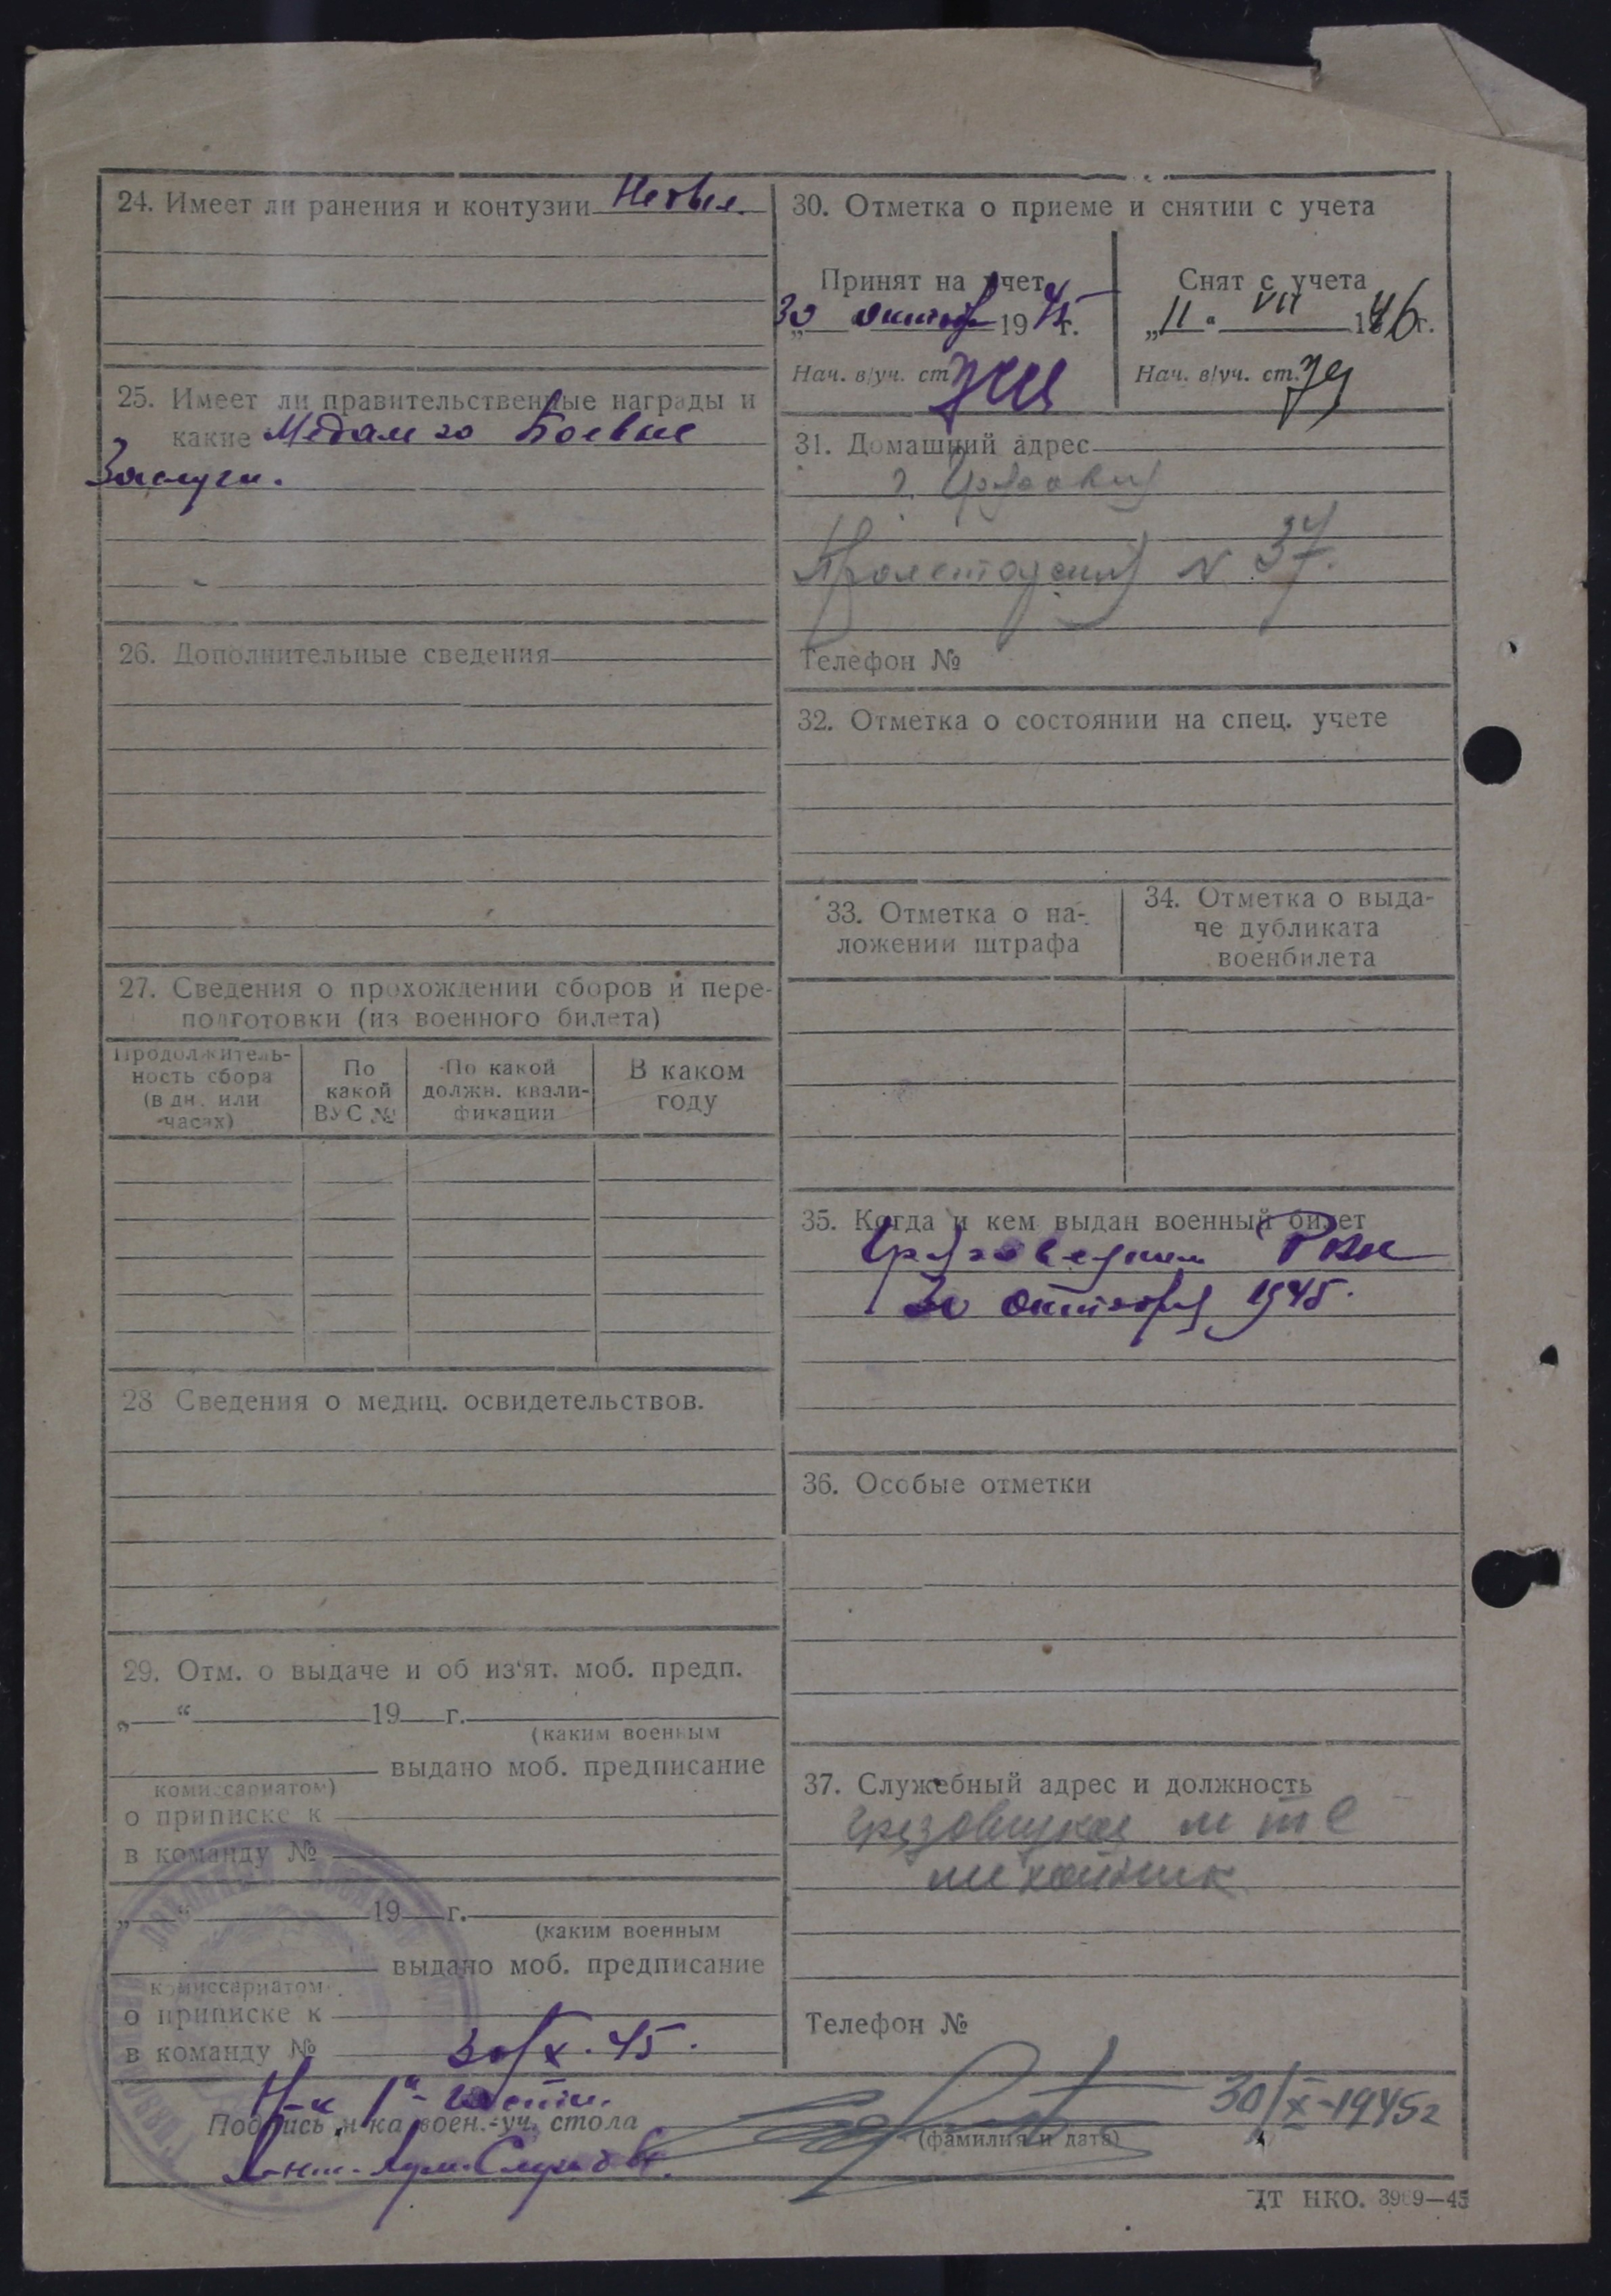 24. Имеет ли ранения и контузии Не был.
25. Имеет ли правительственные награды и
какие Медаль за Боевые
Заслуги.
26. Дополнительные сведения
27. Сведения о прохождении сборов и пере-
подготовки (из военного билета)
Продолжитель-
ность сбора
(в дн. или
часах)
По
какой
ВУС №
По какой
должн. квали-
фикации
В каком
году
28 Сведения о медиц. освидетельствов.
29. Отм. о выдаче и об из'ят. моб. предп.
„ “ 19 г.
(каким военным
выдано моб. предписание
комиссариатом)
о приписке к
в команду №
„ “ 19 г.
(каким военным
выдано моб. предписание
комиссариатом
о приписке к
в команду № 30/X. 45.
Н-к 1й части.
Подпись н-ка воен.-уч. стола
30. Отметка о приеме и снятии с учета
Принят на учет
30 октября 1945 г.
Нач. в/уч. ст.
Снят с учета
„11“ VII 1946 г.
Нач. в/уч. ст.
31. Домашний адрес
г. Грязовец
Пролетарская N 37.
Телефон №
32. Отметка о состоянии на спец. учете
33. Отметка о на-
ложении штрафа
34. Отметка о выда-
че дубликата
военбилета
35. Когда и кем выдан военный билет
Грязовецким РВК
30 октября 1945.
36. Особые отметки
37. Служебный адрес и должность
Грязовецкая МТС
механик
Телефон №
30/X-1945г
(фамилия и дата)
ДТ НКО. 3969—45